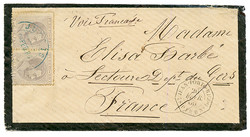 Voie Francaise
Madame
Elisa Barbé
à Lectoure Dept du Gers
France